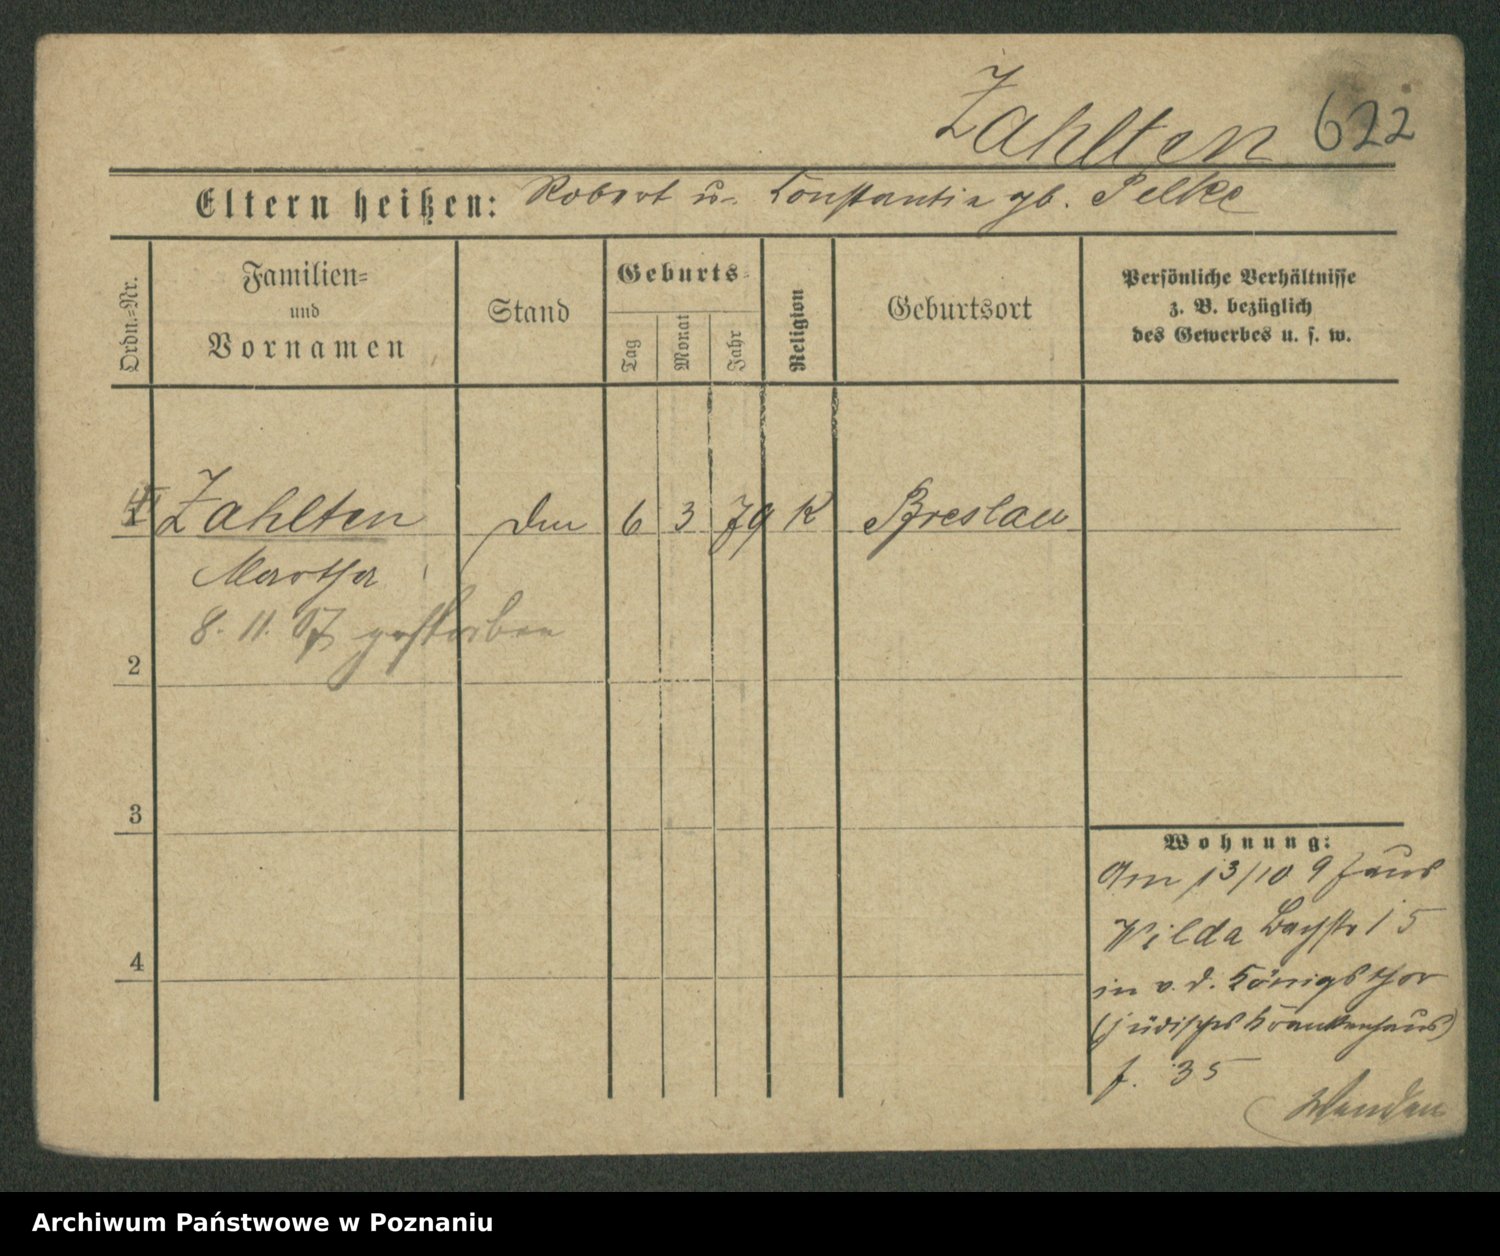 Zahlten 622
Eltern heißen: Robert u. Constantia gb. Pelke
Ordn.-Nr.
Familien-
und
Vornamen
Stand
Geburts-
Tag
Monat
Jahr
Religion
Geburtsort
Persönliche Verhältnisse
z. B. bezüglich
des Gewerbes u. s. w.
1 Zahlten 6 3 79 K Breslau
Martha
8. 11. 97 gestorben
2
3
4
Wohnung:
Am 13/10 9
Wilda Bachstr 15
in v. d. Königsthor
(jüdisches Krankenhaus)
f. 35
Wenden
Archiwum Państwowe w Poznaniu